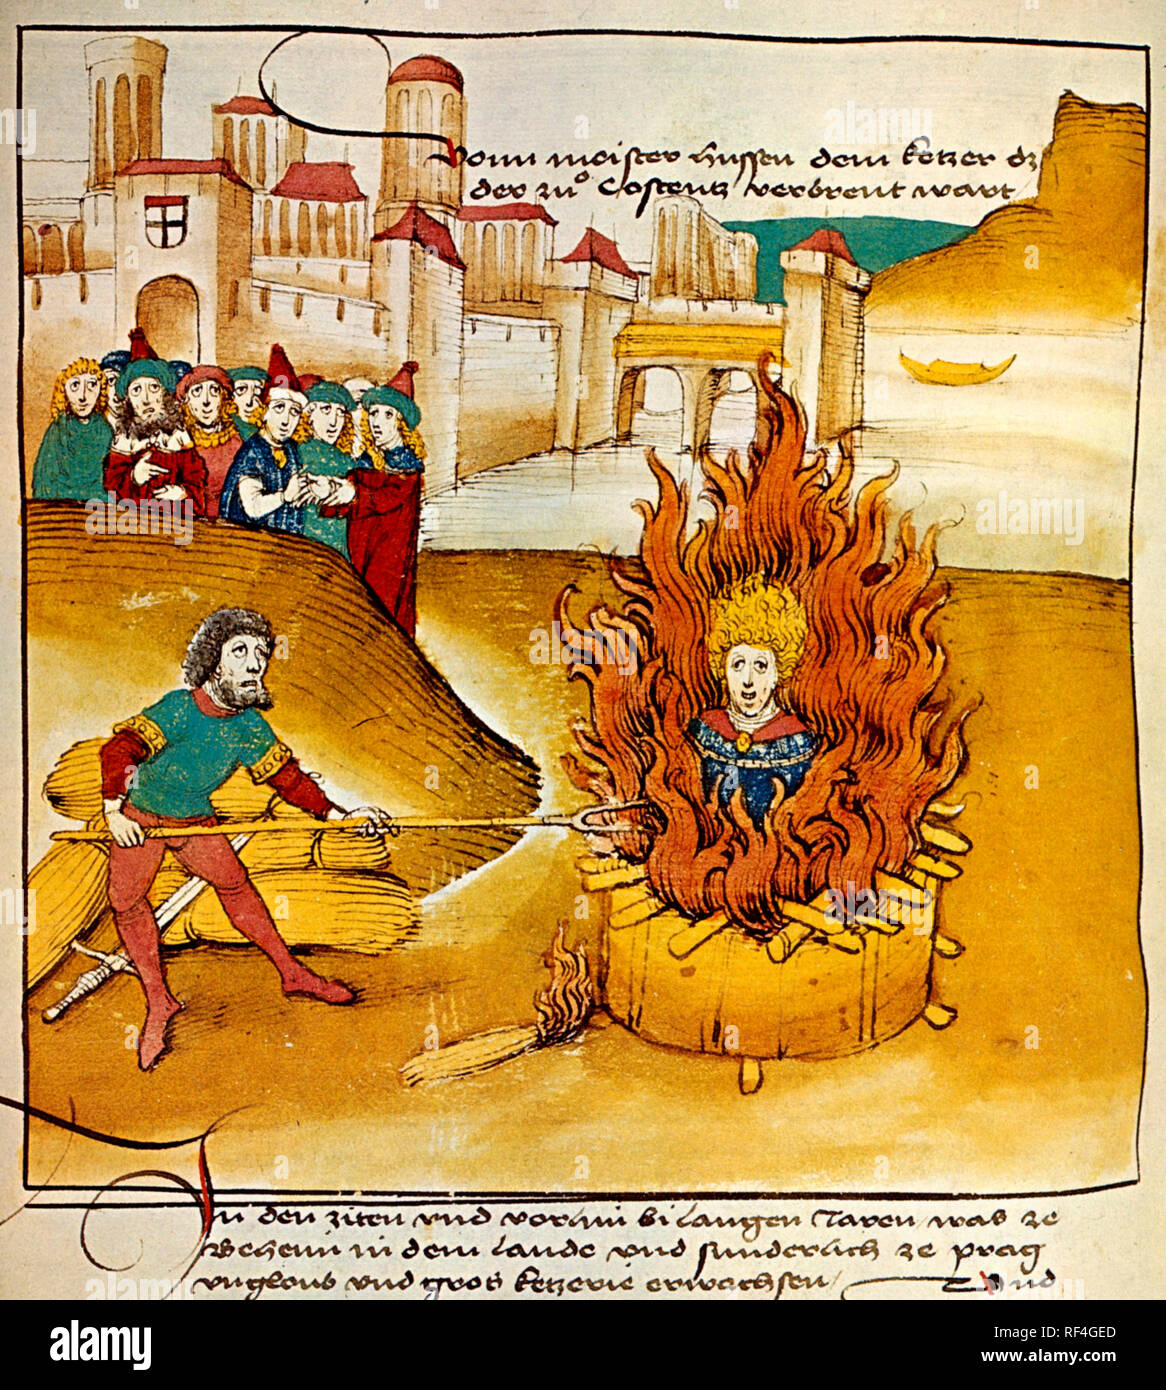 Vonn meister hussen dem ketzer dz
der zuͦ Costentz verbrent wart
In den ziten vnd vorhin bi langen Jaren was ze
Behem in dem lande vnd sunderlich ze prag
vngloub vnd gros ketzerie erwachsen / Vnd
alamy
Image ID: RF4GED
www.alamy.com